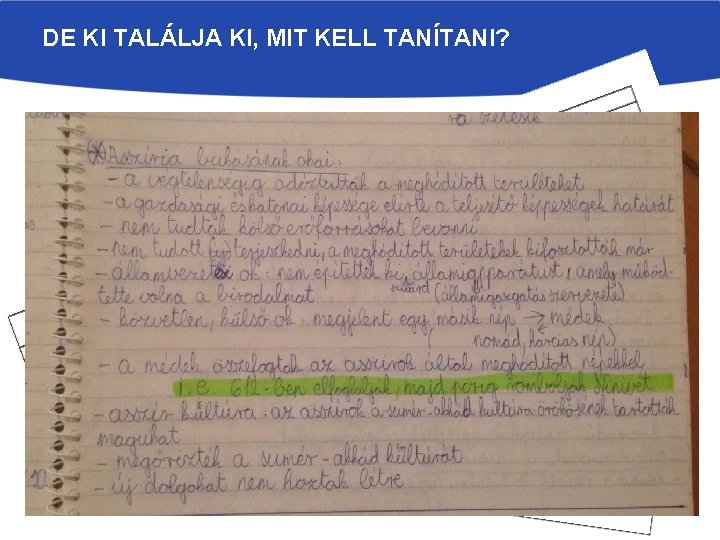 DE KI TALÁLJA KI, MIT KELL TANÍTANI?
szetesik
(*) Asszíria bukásának okai:
- a végtelenségig adóztatták a meghódított területeket
- a gazdasági és katonai képessége elérte a teljesítő képpességek határát
- nem tudták külső erőforrásokat bevonni
- nem tudott terjeszkedni, a meghódított területeket kifosztották már
- államvezetési ok: nem építettek ki szilárd államigpparátust, amely működ-
tette volna a birodalmat (államigazgatás szervezete)
- közvetlen, külső ok: megjelent egy másik nép → médek
(nomád, harcias nép)
- a médek összefogtak az asszírok által meghódított népekkel
i.e. 612-ben elfoglalják, majd porig rombolják Ninivét
- asszír kultúra: az asszírok a sumér-akkád kultúra örökösének tartották
magukat
- megőrizték a sumér-akkád kultúrát
- új dolgokat nem hoztak létre